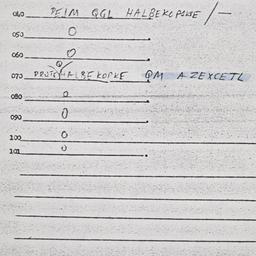 040 PEIM QGL HALBEKOPOUE /—
050 0
060 0
070 PRUTO HALBEKOPKE QM AZEXCETL
080 0
090 0
100 0
101 0